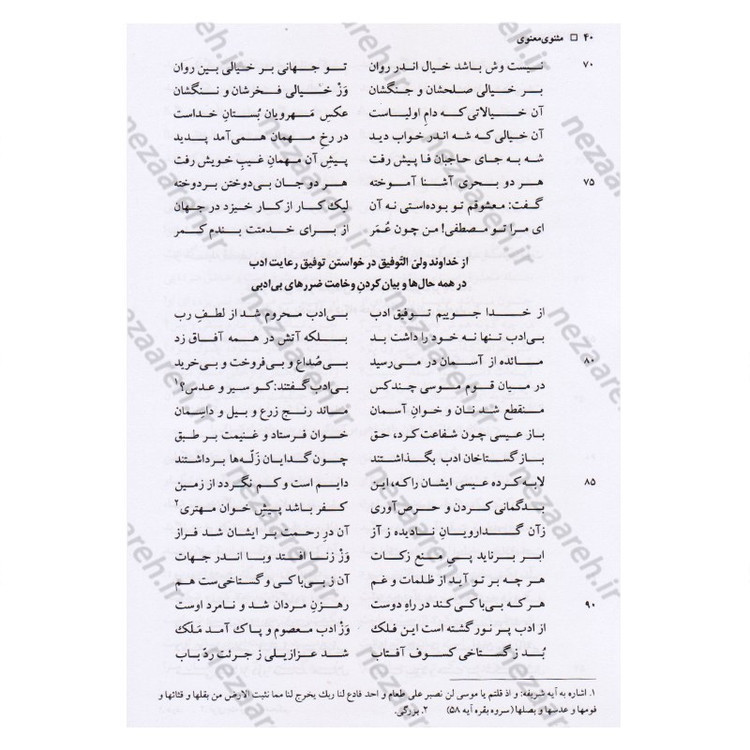 ۴۰ □ مثنوی معنوی
۷۰ نیست وش باشد خیال اندر روان تو جهانی بر خیالی بین روان
بر خیالی صلحشان و جنگشان وَز خیالی فخرشان و ننگشان
آن خیالاتی که دامِ اولیاست عکسِ مَهرویان بُستانِ خداست
آن خیالی که شه اندر خواب دید در رخِ مهمان همی‌آمد پدید
شه به جای حاجبان فا پیش رفت پیشِ آن مهمانِ غیبِ خویش رفت
۷۵ هر دو بحری آشنا آموخته هر دو جان بی‌دوختن بردوخته
گفت: معشوقم تو بوده‌استی نه آن لیک کار از کار خیزد در جهان
ای مرا تو مصطفی! من چون عُمَر از برای خدمتت بندم کمر
از خداوند ولیّ التّوفیق درخواستن توفیق رعایت ادب
در همه حال‌ها و بیان کردنِ وخامت ضررهای بی‌ادبی
از خدا جوییم توفیق ادب بی‌ادب محروم شد از لطفِ رب
بی‌ادب تنها نه خود را داشت بد بلکه آتش در همه آفاق زد
۸۰ مائده از آسمان در می‌رسید بی‌صُداع و بی‌فروخت و بی‌خرید
در میان قوم موسی چند کس بی‌ادب گفتند: کو سیر و عدس؟۱
منقطع شد نان و خوانِ آسمان ماند رنج زرع و بیل و داسمان
باز عیسی چون شفاعت کرد، حق خوان فرستاد و غنیمت بر طبق
باز گستاخان ادب بگذاشتند چون گدایان زَلّه‌ها برداشتند
۸۵ لابه کرده عیسی ایشان را که، این دایم است و کم نگردد از زمین
بدگمانی کردن و حرص‌آوری کفر باشد پیشِ خوان مهتری۲
زآن گدارویانِ نادیده ز آز آن درِ رحمت بر ایشان شد فراز
ابر برناید پی منع زکات وَز زنا افتد وبا اندر جهات
هر چه بر تو آید از ظلمات و غم آن ز بی‌باکی و گستاخی‌ست هم
۹۰ هر که بی‌باکی کند در راهِ دوست رهزنِ مردان شد و نامرد اوست
از ادب پر نور گشته است این فلک وَز ادب معصوم و پاک آمد مَلَک
بُد ز گستاخی کسوف آفتاب شد عزازیلی ز جرئت ردّ باب
۱. اشاره به آیه شریفه: و اذ قلتم یا موسی لن نصبر علی طعام و احد فادع لنا ربک یخرج لنا مما تنبت الارض من بقلها و قثائها و
فومها و عدسها و بصلها (سروه بقره آیه ۵۸) ۲. بزرگی.
nezaareh.ir